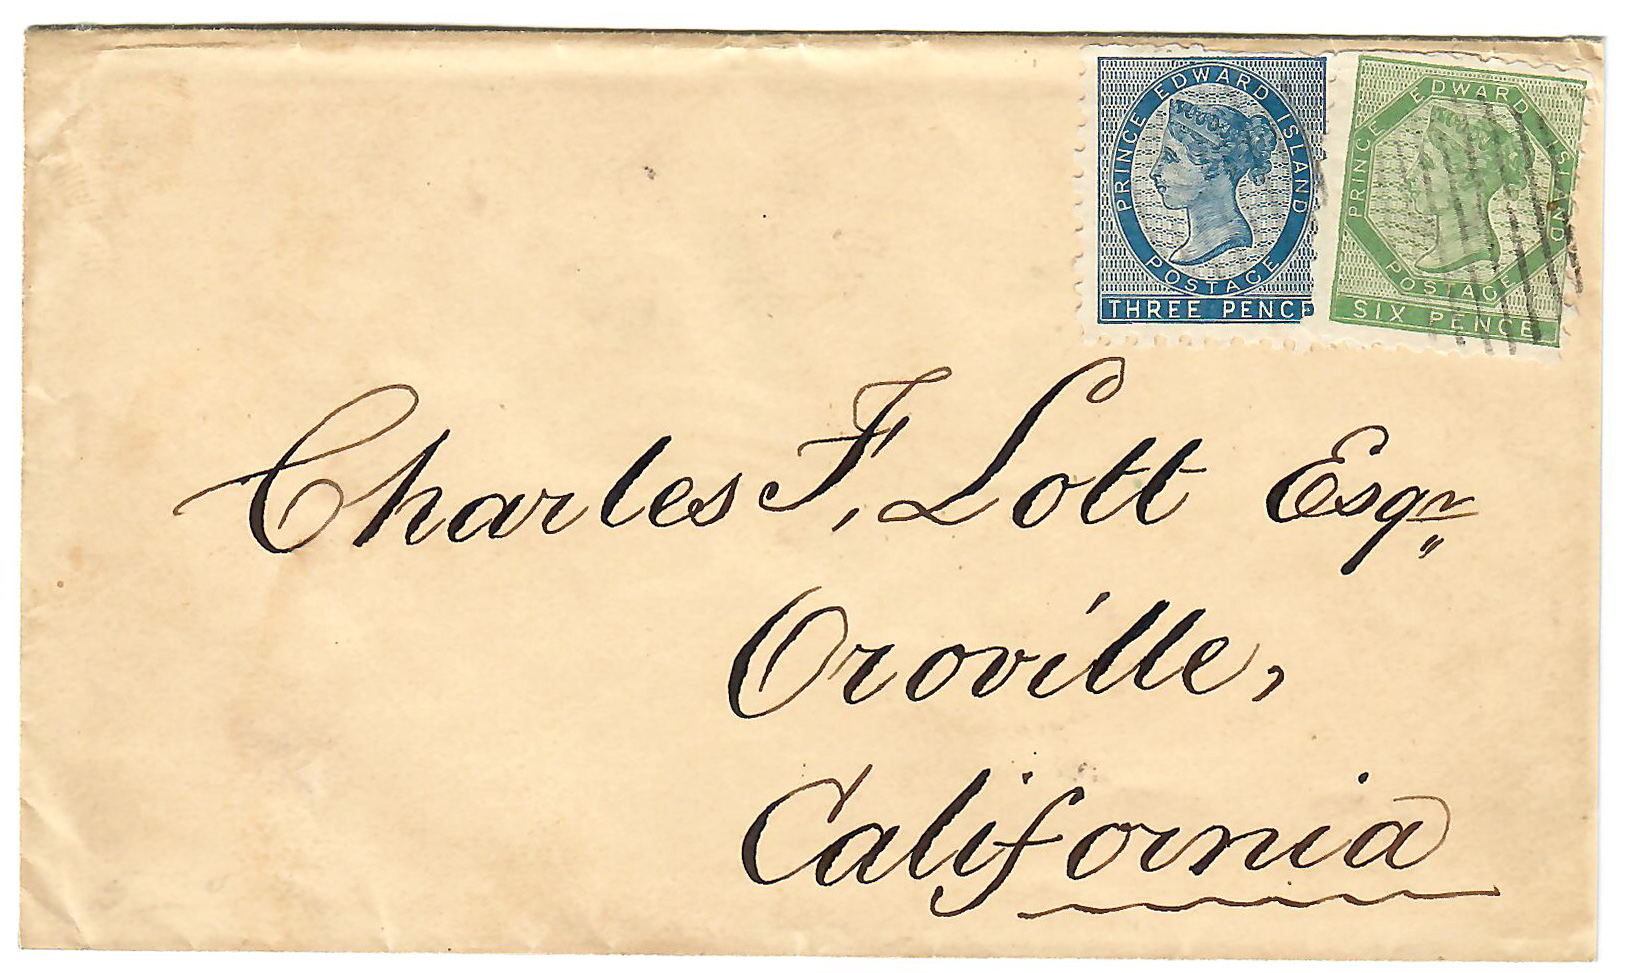 PRINCE EDWARD ISLAND
POSTAGE
THREE PENCE
PRINCE EDWARD ISLAND
POSTAGE
SIX PENCE
Charles F. Lott Esqr
Oroville,
California